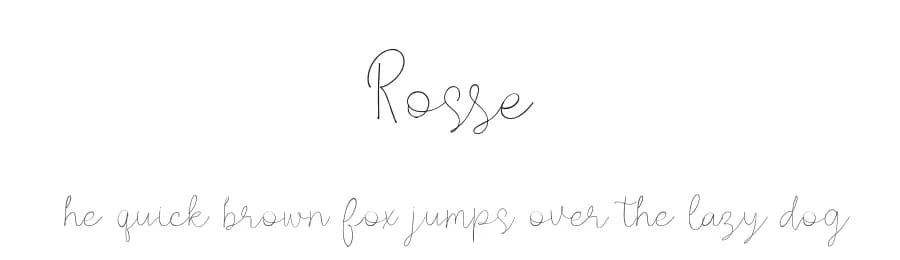 Rosse
he quick brown fox jumps over the lazy dog